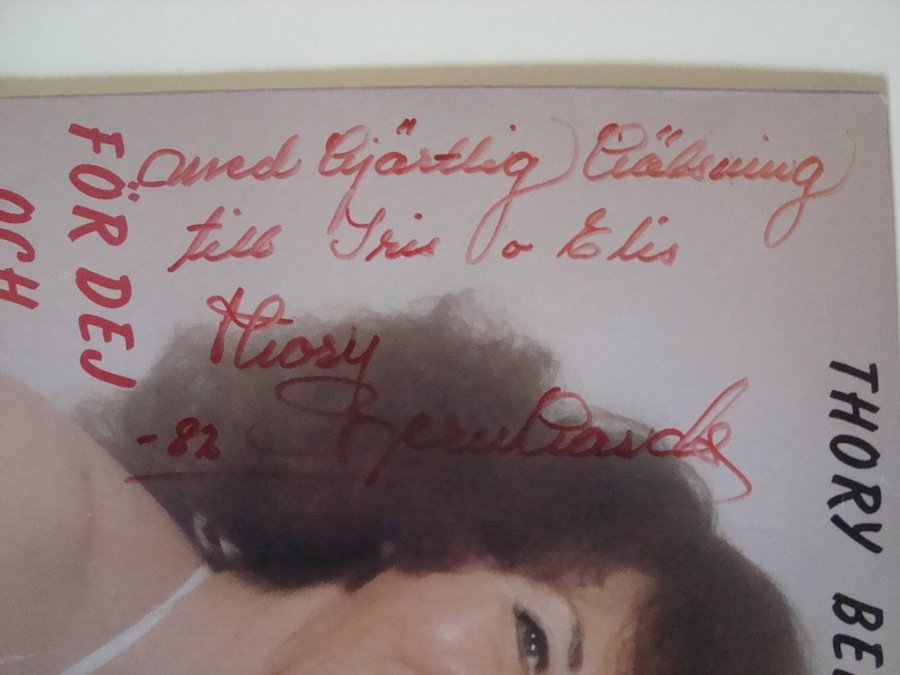 med hjärtlig hälsning
till Iris o Elis
Thory
Bernhards
-82
FÖR DEJ
OCH
THORY BE